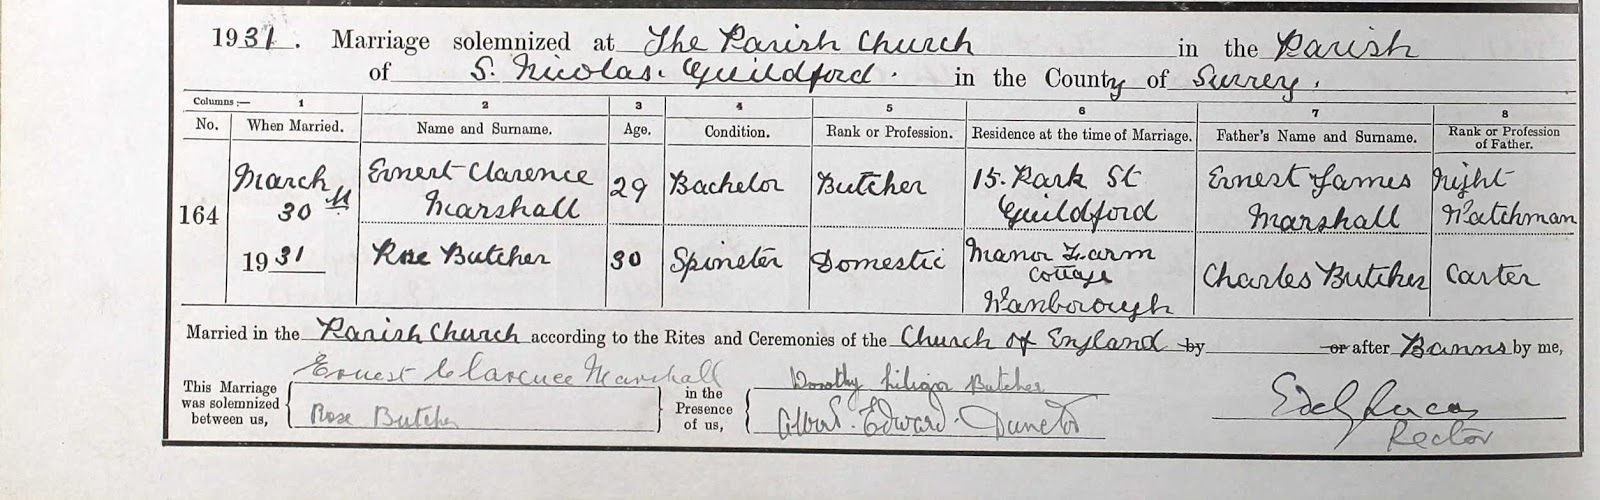 1931. Marriage solemnized at The Parish Church in the Parish
of S. Nicolas. Guildford. in the County of Surrey.
Columns :— 1 2 3 4 5 6 7 8
No. When Married. Name and Surname. Age. Condition. Rank or Profession. Residence at the time of Marriage. Father's Name and Surname. Rank or Profession of Father.
164 March 30th 1931
Ernest Clarence Marshall 29 Bachelor Butcher 15. Park St Guildford Ernest James Marshall Night Watchman
Rose Butcher 30 Spinster Domestic Manor Farm Cottage Wanborough Charles Butcher Carter
Married in the Parish Church according to the Rites and Ceremonies of the Church of England by or after Banns by me,
This Marriage was solemnized between us,
Ernest Clarence Marshall
Rose Butcher
in the Presence of us,
Dorothy Butcher
Albert Edward
Lucas
Rector